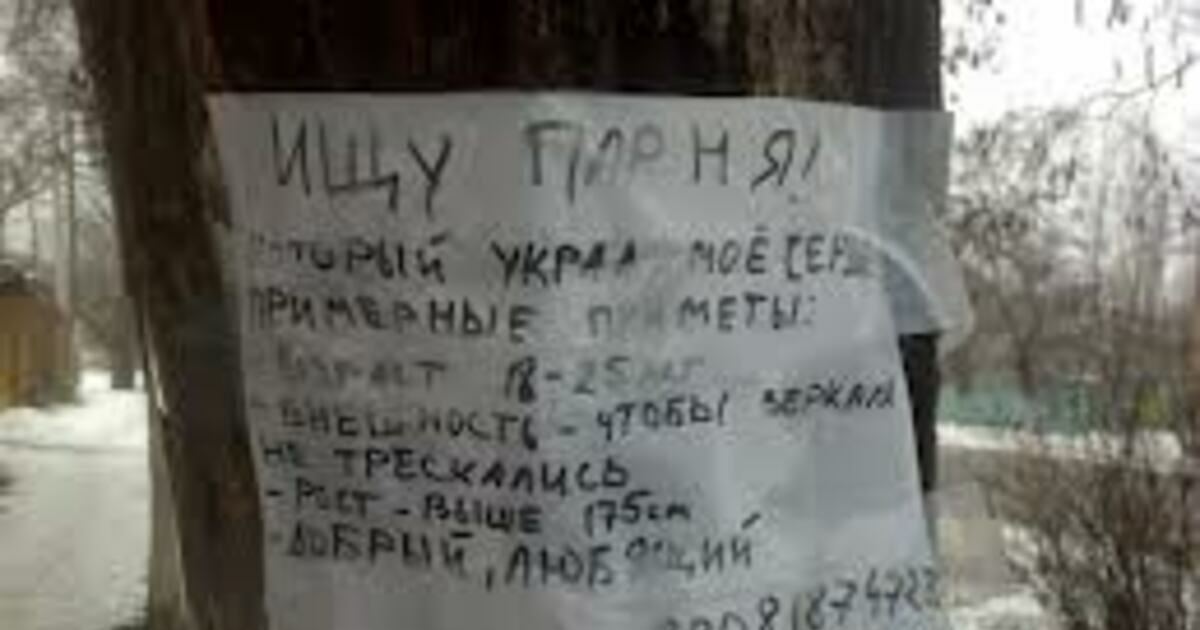 ИЩУ ПАРНЯ!
КОТОРЫЙ УКРАЛ МОЁ СЕРДЦЕ
ПРИМЕРНЫЕ ПРИМЕТЫ:
- ВОЗРАСТ 18-25 лет
- ВНЕШНОСТЬ - ЧТОБЫ ЗЕРКАЛА
НЕ ТРЕСКАЛИСЬ
- РОСТ - ВЫШЕ 175см
- ДОБРЫЙ, ЛЮБЯЩИЙ